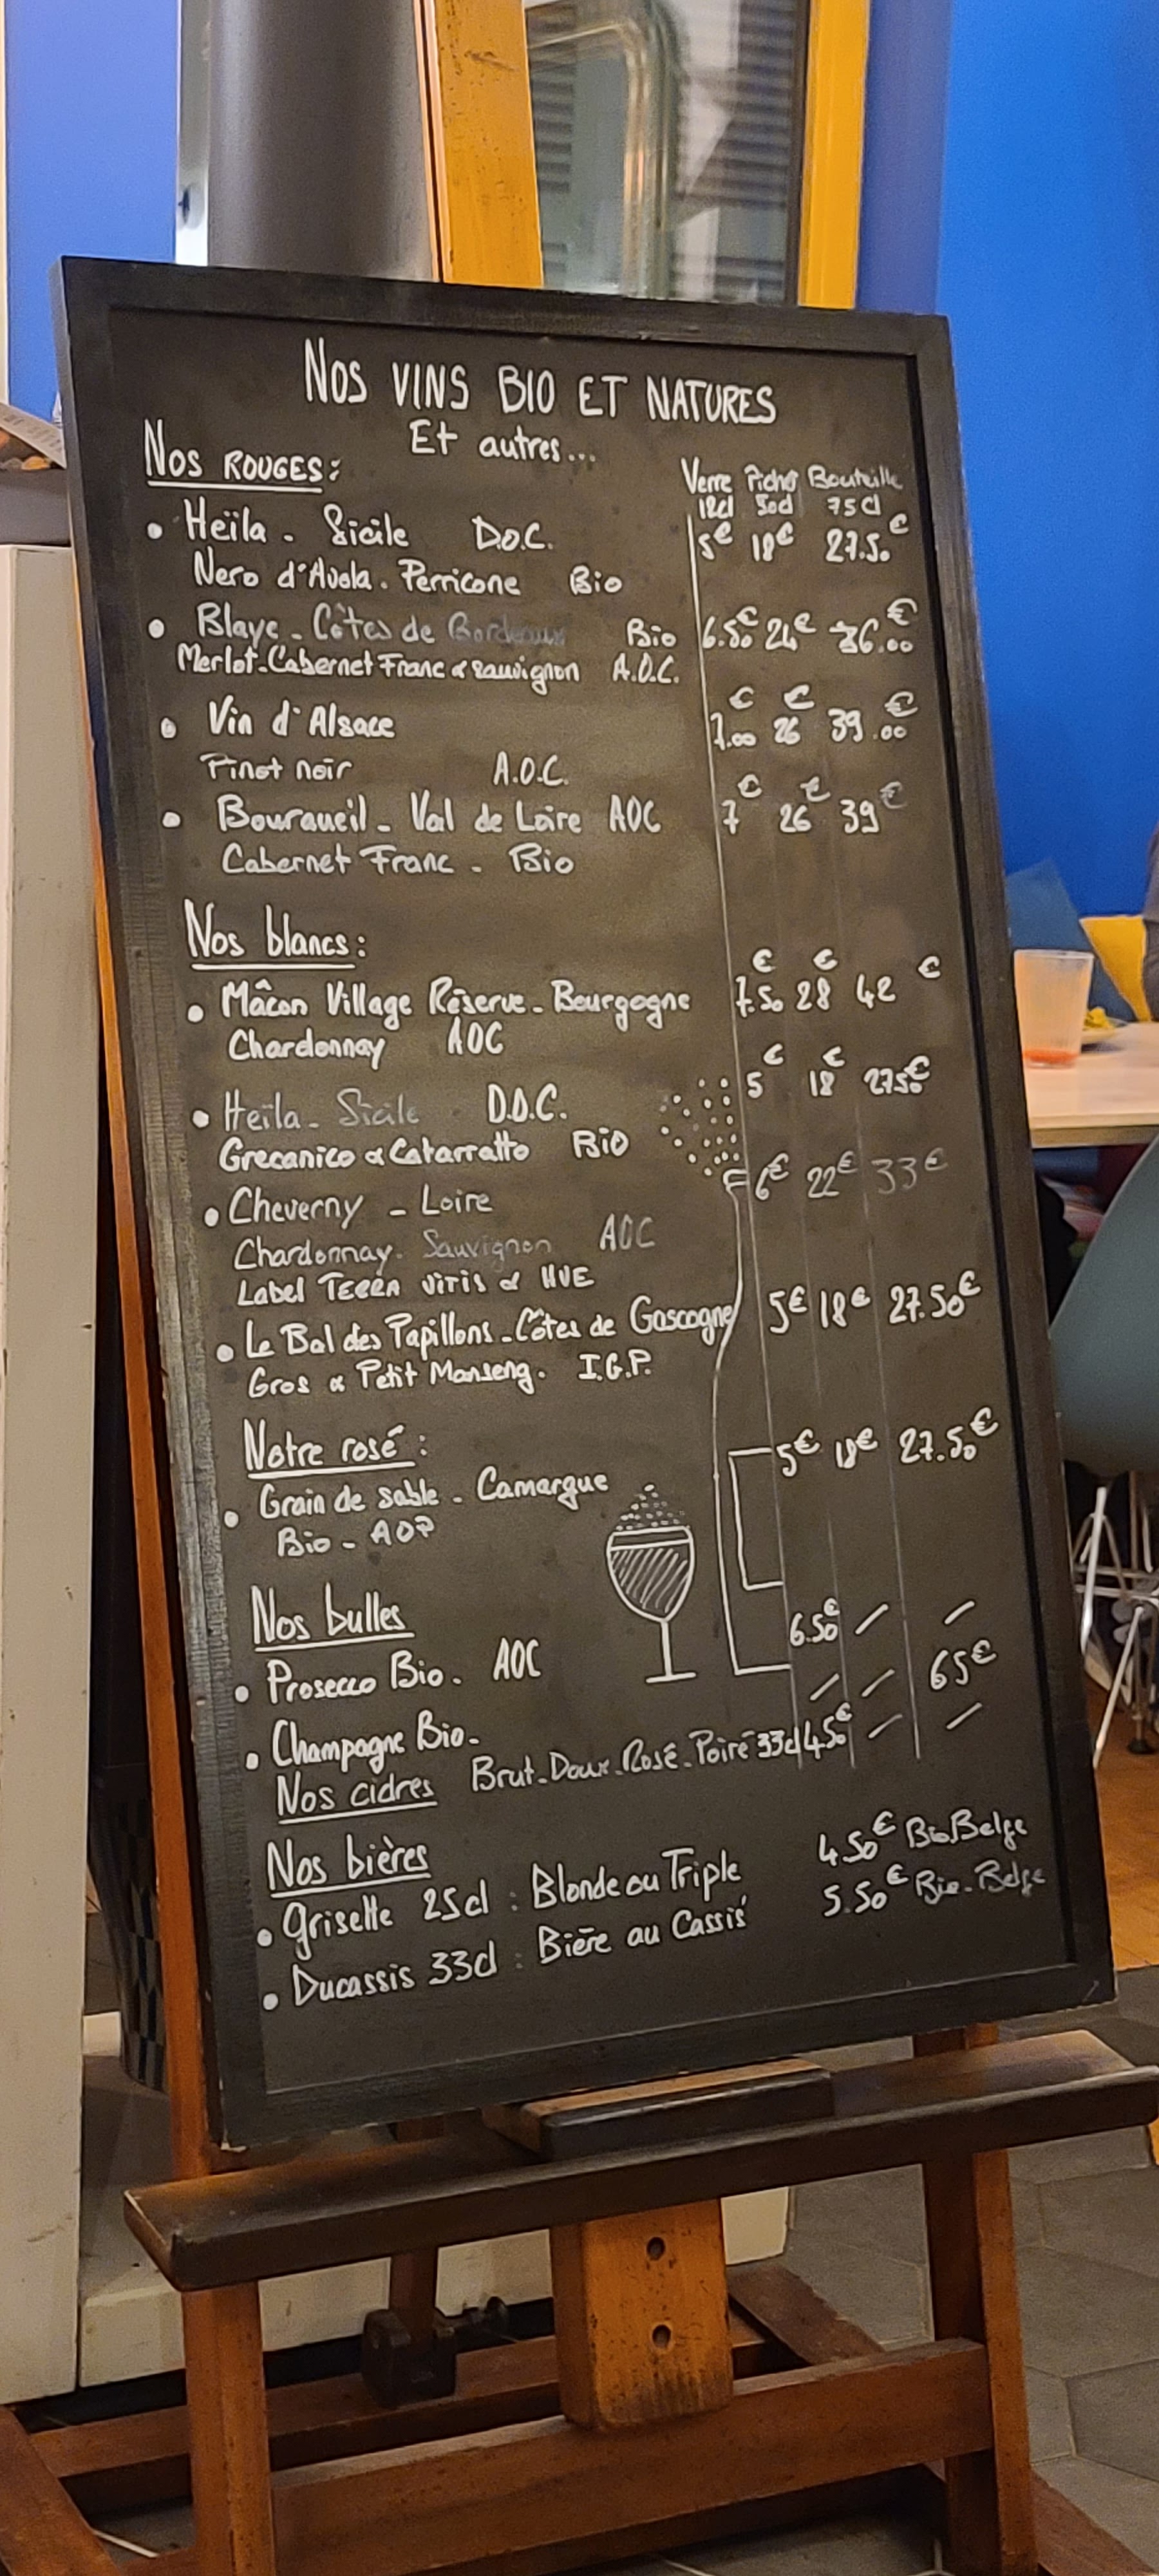 NOS VINS BIO ET NATURES
Et autres...
NOS ROUGES:
Verre Pichet Bouteille
12cl 50cl 75cl
• Heïla - Sicile D.O.C. 5€ 18€ 27.50€
Nero d'Avola - Perricone Bio
• Blaye - Côtes de Bordeaux Bio 6.50€ 24€ 36.00€
Merlot-Cabernet Franc & sauvignon A.O.C.
• Vin d'Alsace 7.00€ 26€ 39.00€
Pinot noir A.O.C.
• Bourgueil - Val de Loire AOC 7€ 26€ 39€
Cabernet Franc - Bio
Nos blancs:
• Mâcon Village Réserve - Bourgogne 7.50€ 28€ 42€
Chardonnay AOC
• Heïla - Sicile D.O.C. 5€ 18€ 27.50€
Grecanico & Catarratto BiO
• Cheverny - Loire 6€ 22€ 33€
Chardonnay - Sauvignon AOC
Label TERRA VITIS & HVE
• Le Bal des Papillons - Côtes de Gascogne 5€ 18€ 27.50€
Gros & Petit Manseng. I.G.P.
Notre rosé: 5€ 18€ 27.50€
• Grain de sable - Camargue
Bio - AOP
Nos bulles
• Prosecco Bio. AOC 6.50€ / /
• Champagne Bio - / / 65€
Nos cidres Brut-Doux-Rosé-Poiré 33cl 4.50€ / /
Nos bières
• Griselle 25cl : Blonde ou Triple 4.50€ Bio Belge
• Ducassis 33cl : Bière au Cassis 5.50€ Bio-Belge